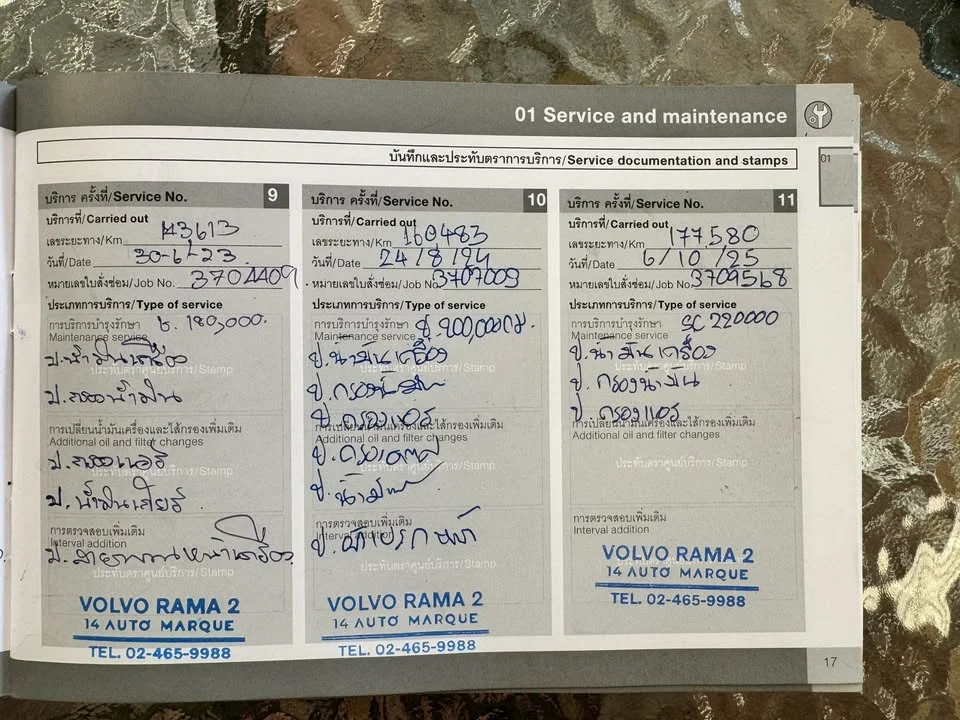 01 Service and maintenance
บันทึกและประทับตราการบริการ/Service documentation and stamps
01
บริการ ครั้งที่/Service No. 9
บริการที่/Carried out
เลขระยะทาง/Km 143613
วันที่/Date 30-6-23
หมายเลขใบสั่งซ่อม/Job No. 3704409
ประเภทการบริการ/Type of service
การบริการบำรุงรักษา 180,000.
Maintenance service
ป.น้ำมันเครื่อง
ประทับตราศูนย์บริการ/Stamp
ป.กรองน้ำมัน
การเปลี่ยนน้ำมันเครื่องและไส้กรองเพิ่มเติม
Additional oil and filter changes
ป.กรองแอร์
ประทับตราศูนย์บริการ/Stamp
ป.น้ำมันเกียร์
การตรวจสอบเพิ่มเติม
Interval addition
ป.สายพานหน้าเครื่อง
ประทับตราศูนย์บริการ/Stamp
VOLVO RAMA 2
14 AUTO MARQUE
TEL. 02-465-9988
บริการ ครั้งที่/Service No. 10
บริการที่/Carried out
เลขระยะทาง/Km 160483
วันที่/Date 24/8/24
หมายเลขใบสั่งซ่อม/Job No 3707009
ประเภทการบริการ/Type of service
การบริการบำรุงรักษา 200,000
Maintenance service
ป.น้ำมันเครื่อง
ประทับตราศูนย์บริการ/Stamp
ป.กรองน้ำมัน
ป.กรองแอร์
การเปลี่ยนน้ำมันเครื่องและไส้กรองเพิ่มเติม
Additional oil and filter changes
ประทับตราศูนย์บริการ/Stamp
การตรวจสอบเพิ่มเติม
Interval addition
ประทับตราศูนย์บริการ/Stamp
VOLVO RAMA 2
14 AUTO MARQUE
TEL. 02-465-9988
บริการ ครั้งที่/Service No. 11
บริการที่/Carried out
เลขระยะทาง/Km 177580
วันที่/Date 6/10/25
หมายเลขใบสั่งซ่อม/Job No. 3709568
ประเภทการบริการ/Type of service
การบริการบำรุงรักษา SC 220000
Maintenance service
ป.น้ำมันเครื่อง
ประทับตราศูนย์บริการ/Stamp
ป.กรองน้ำมัน
ป.กรองแอร์
การเปลี่ยนน้ำมันเครื่องและไส้กรองเพิ่มเติม
Additional oil and filter changes
ประทับตราศูนย์บริการ/Stamp
การตรวจสอบเพิ่มเติม
Interval addition
ประทับตราศูนย์บริการ/Stamp
VOLVO RAMA 2
14 AUTO MARQUE
TEL. 02-465-9988
17